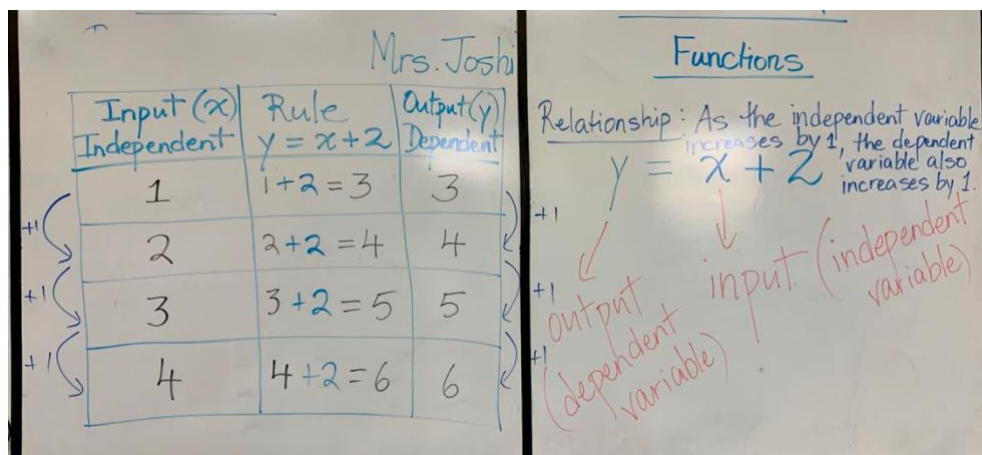 Mrs. Joshi
Input (x) Rule Output (y)
Independent y = x + 2 Dependent
1 1 + 2 = 3 3
+1 +1
2 2 + 2 = 4 4
+1 +1
3 3 + 2 = 5 5
+1 +1
4 4 + 2 = 6 6
Functions
Relationship: As the independent variable
increases by 1, the dependent
variable also
increases by 1.
y = x + 2
output
(dependent
variable)
input (independent
variable)